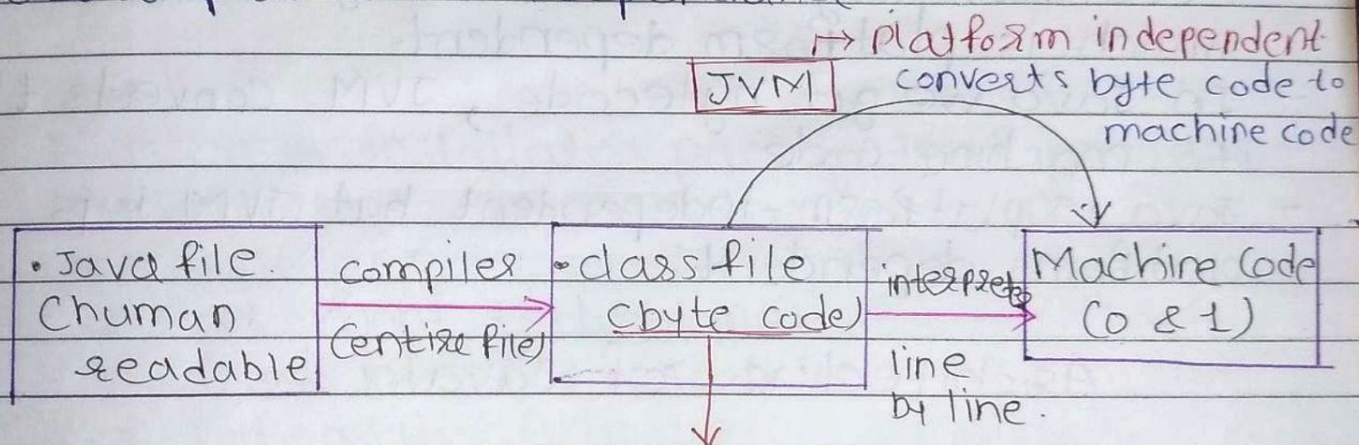 ↦ platform independent
JVM converts byte code to
machine code
.Java file
(human
readable
compiler
(entire file)
.class file
(byte code)
interpreter
line
by line.
Machine Code
(0 & 1)